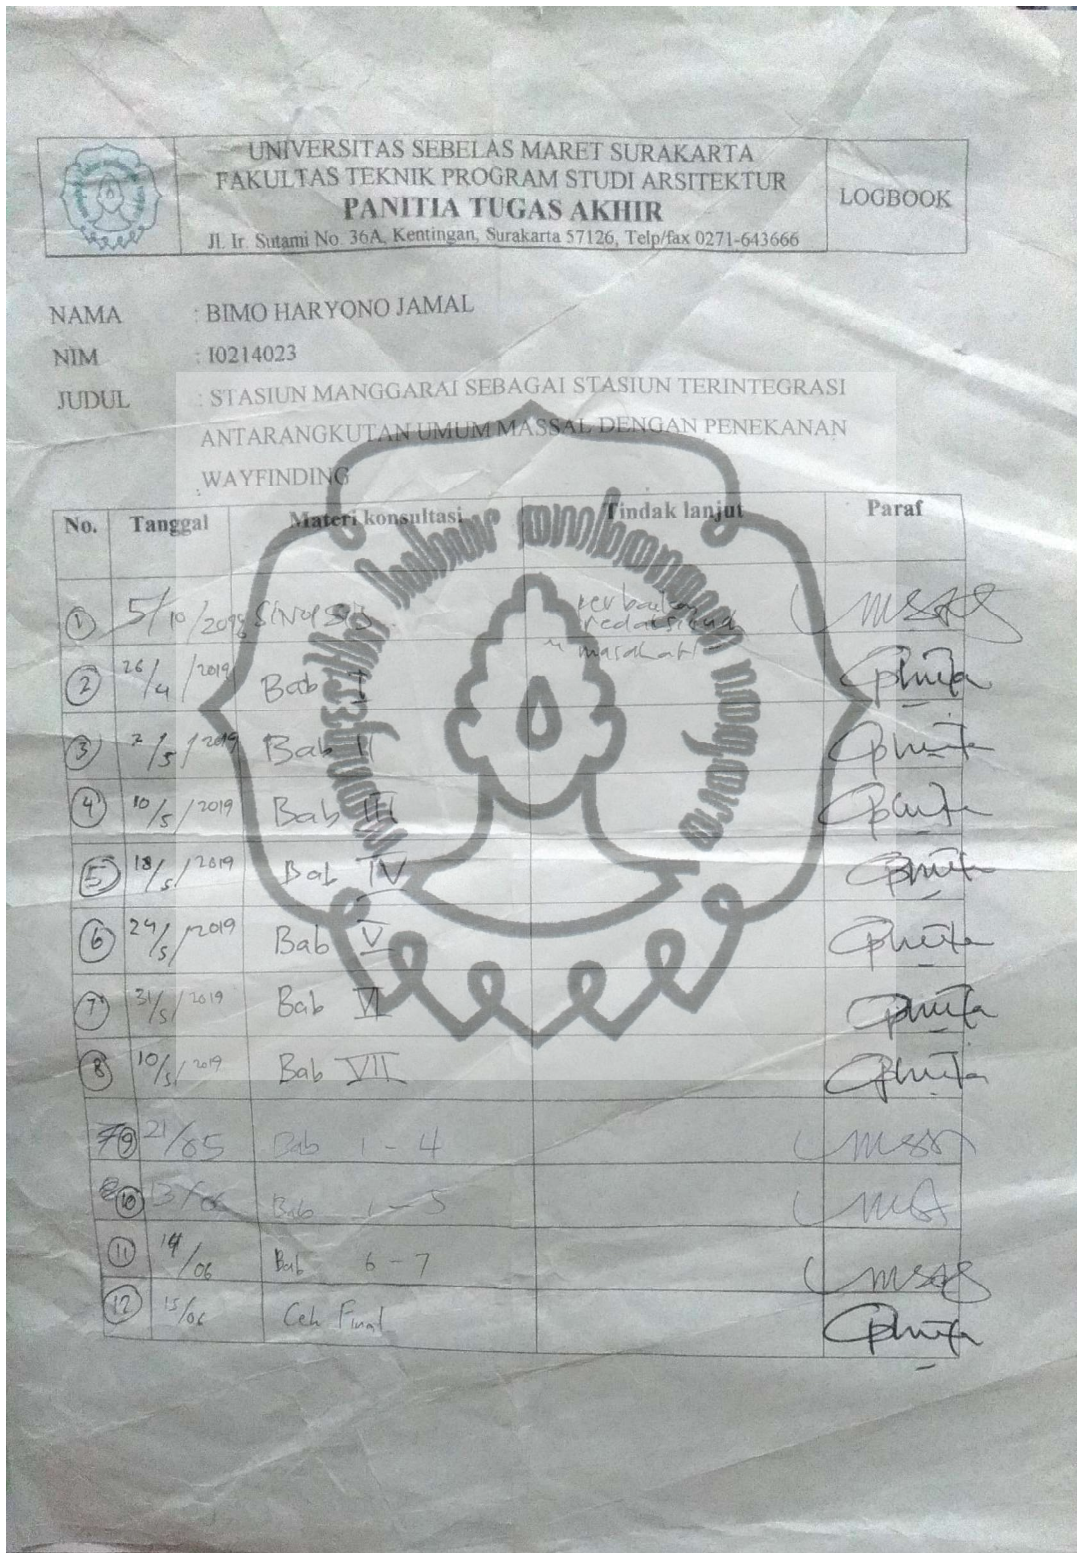 UNIVERSITAS SEBELAS MARET SURAKARTA
FAKULTAS TEKNIK PROGRAM STUDI ARSITEKTUR
PANITIA TUGAS AKHIR
Jl. Ir. Sutami No. 36A, Kentingan, Surakarta 57126, Telp/fax 0271-643666
LOGBOOK
NAMA : BIMO HARYONO JAMAL
NIM : I0214023
JUDUL : STASIUN MANGGARAI SEBAGAI STASIUN TERINTEGRASI
ANTARANGKUTAN UMUM MASSAL DENGAN PENEKANAN
WAYFINDING
No. Tanggal Materi konsultasi Tindak lanjut Paraf
1 5/10/2018 Sinopsis
2 26/4/2019 Bab
3 2/5/2019 Bab II
4 10/5/2019 Bab III
5 18/5/2019 Bab IV
6 24/5/2019 Bab V
7 31/5/2019 Bab VI
8 10/5/2019 Bab VII
9 21/05 Bab 1 - 4
10 13/06 Bab 1 - 5
11 14/06 Bab 6 - 7
12 15/06 Cek Final